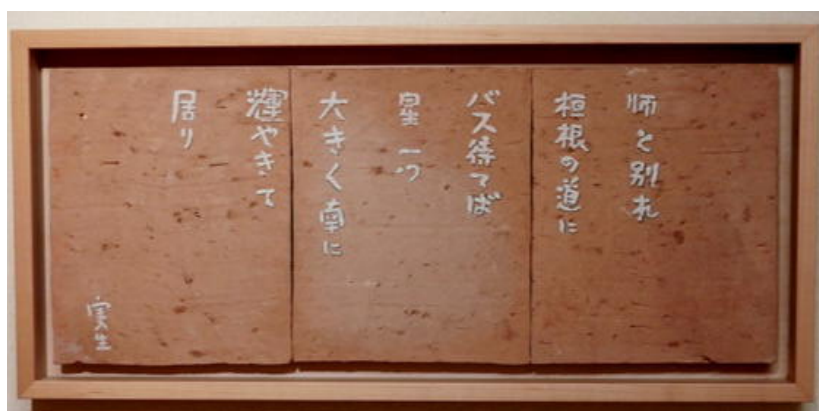 師と別れ
垣根の道に
バス待てば
星一つ
大きく南に
輝やきて
居り
実生